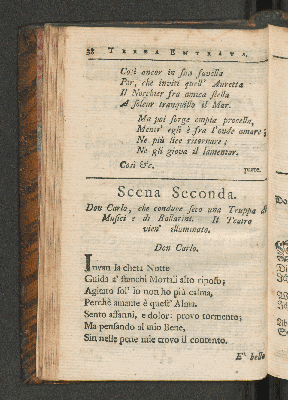 38 TERZA ENTRATA,
Così ancor in sua favella
Par, che inviti quell' Auretta
Il Nocchier fra amica stella
A solcar tranquillo il Mar.
Ma poi sorge empia procella,
Mentr' egli è fra l'onde amare;
Ne più lice ritornare;
Ne gli giova il lamentar.
Così &c.
parte.
Scena Seconda.
Don Carlo, che conduce seco una Truppa di
Musici e di Ballarini. Il Teatro
vien' illuminato.
Don Carlo.
Invan la cheta Notte
Guida a' stanchi Mortali alto riposo;
Agitato sol' io non ho più calma,
Perchè amante è quest' Alma.
Sento affanni, e dolor: provo tormento;
Ma pensando al mio Bene,
Sin nelle pene mie trovo il contento.
E' bella